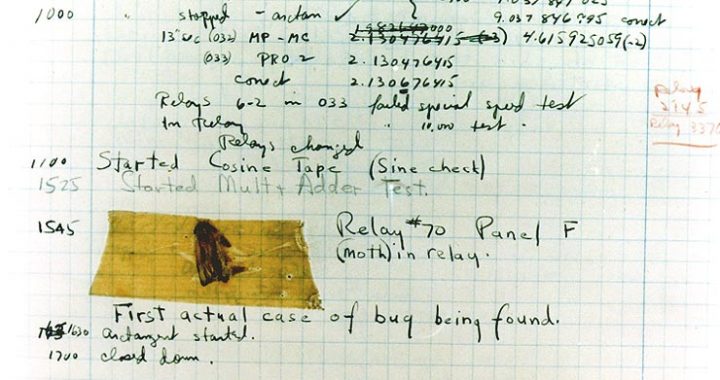 9.037 847 025
1000 stopped - arctan ✓ 9.037 846 995 conect
13"uc (032) MP - MC 2.130476415 4.615925059(-2)
(033) PRO 2 2.130476415
conect 2.130676415
Relays 6-2 in 033 failed special speed test
In Relay " 10.000 test .
Relay
2145
Relay 3370
Relays changed
1100 Started Cosine Tape (Sine check)
1525 Started Mult+ Adder Test.
1545 Relay #70 Panel F
(moth) in relay.
First actual case of bug being found.
1630 arctangent started.
1700 closed down.